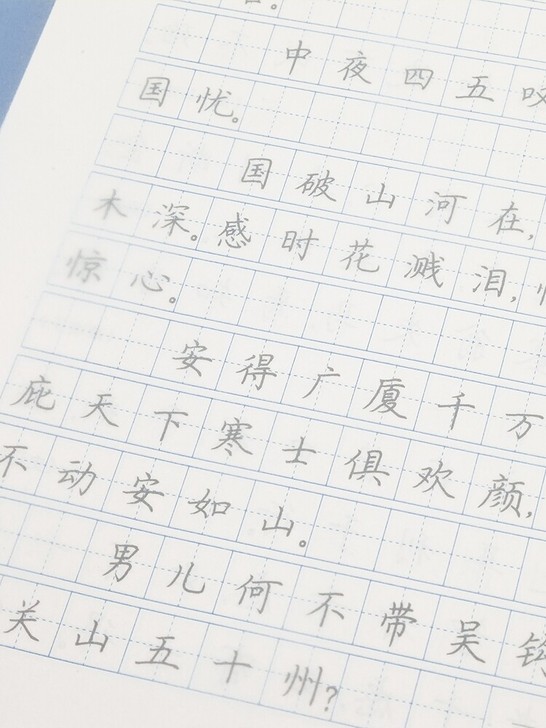 。
中夜四五叹
国忧。
国破山河在,
木深。感时花溅泪,
惊心。
安得广厦千万
庇天下寒士俱欢颜,
不动安如山。
男儿何不带吴钩
关山五十州?